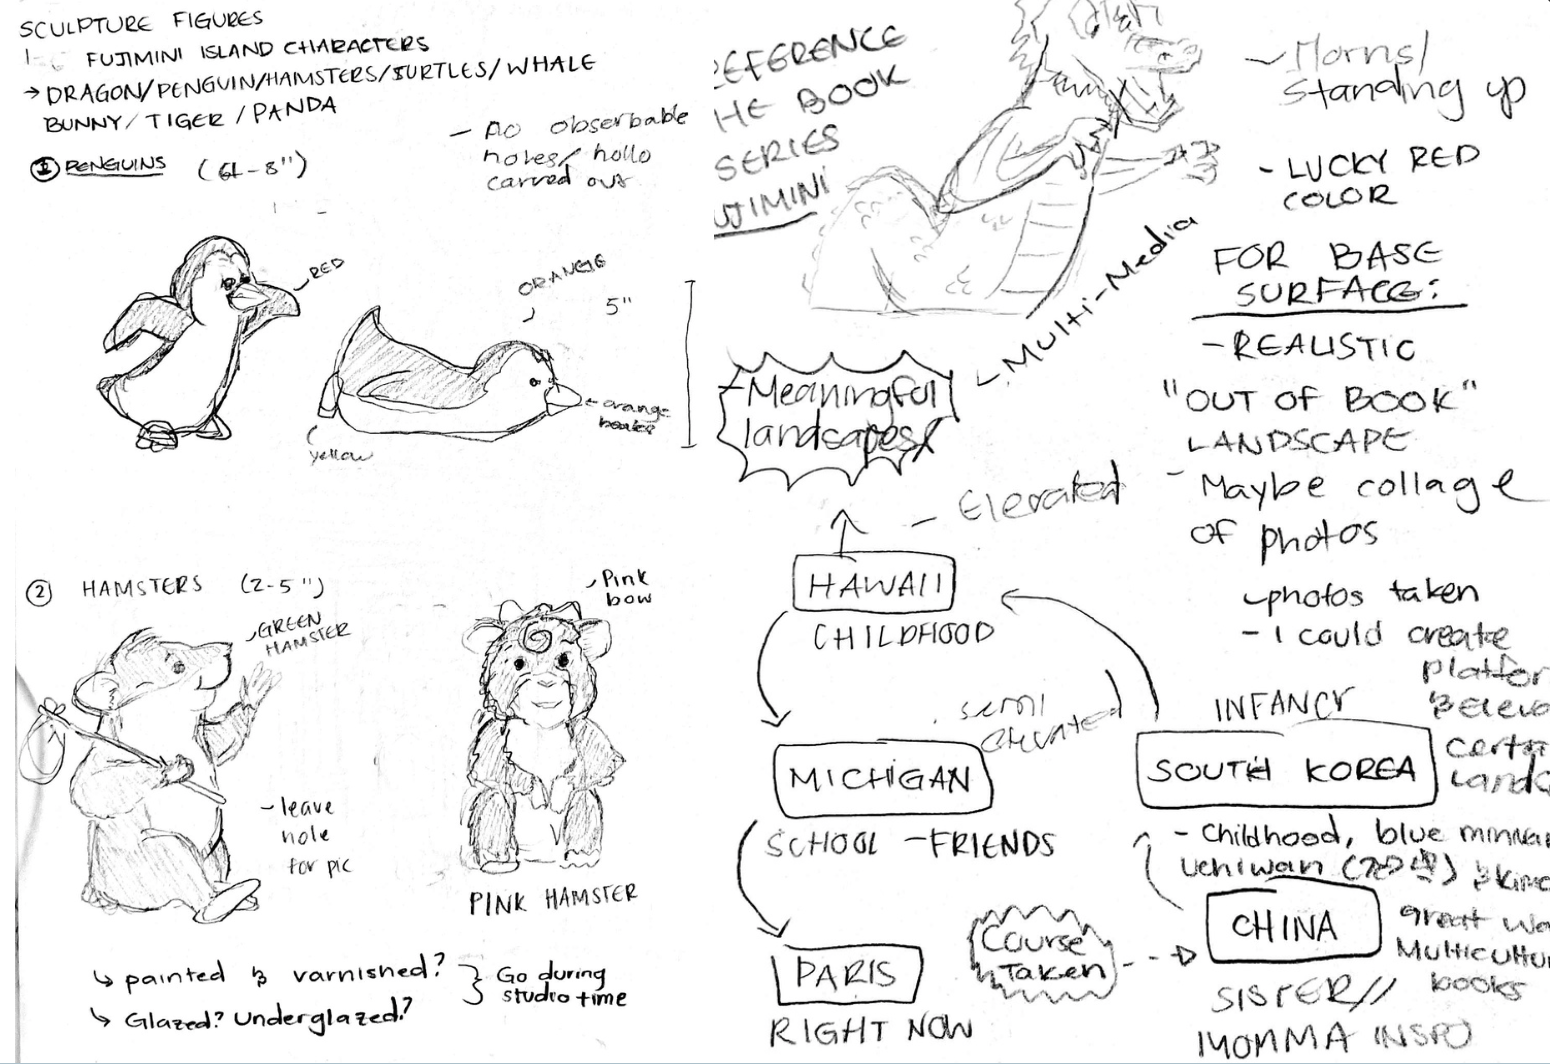 SCULPTURE FIGURES
FUJIMINI ISLAND CHARACTERS
→ DRAGON/PENGUIN/HAMSTERS/TURTLES/WHALE
BUNNY/TIGER/PANDA
① PENGUINS
- no obserbable
holes/hollo
carved out
RED
ORANGE
5"
orange
yellow
② HAMSTERS (2-5")
GREEN
HAMSTER
Pink
bow
- leave
hole
for pic
PINK HAMSTER
↳ painted & varnished?
↳ Glazed? Underglazed?
Go during
studio time
EFERENCE
HE BOOK
SERIES
UJIMINI
- Horns/
Standing up
- LUCKY RED
COLOR
- Multi-Media
FOR BASE
SURFACE:
- REALISTIC
"OUT OF BOOK"
LANDSCAPE
- Maybe collage
of photos
photos taken
- I could create
platfor
certa
Lands
- Meaningful
landscapes
- Elevated
HAWAII
CHILDHOOD
semi
elevated
MICHIGAN
SCHOOL - FRIENDS
PARIS
RIGHT NOW
INFANCY
SOUTH KOREA
- childhood, blue
Course
Taken
CHINA
great wa
Multicultu
books
SISTER//
MOMMA INSPO